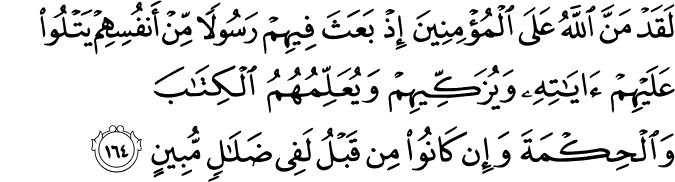 لَقَدۡ مَنَّ ٱللَّهُ عَلَى ٱلۡمُؤۡمِنِينَ إِذۡ بَعَثَ فِيهِمۡ رَسُولٗا مِّنۡ أَنفُسِهِمۡ يَتۡلُواْ
عَلَيۡهِمۡ ءَايَٰتِهِۦ وَيُزَكِّيهِمۡ وَيُعَلِّمُهُمُ ٱلۡكِتَٰبَ
وَٱلۡحِكۡمَةَ وَإِن كَانُواْ مِن قَبۡلُ لَفِي ضَلَٰلٖ مُّبِينٍ ١٦٤